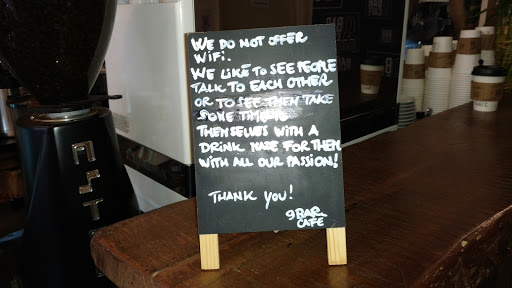 WE DO NOT OFFER
WiFi.
WE LIKE TO SEE PEOPLE
TALK TO EACH OTHER
OR TO SEE THEN TAKE
SOME TIME
THEMSELVES WITH A
DRINK MADE FOR THEM
WITH ALL OUR PASSION!
THANK YOU!
9BAR
CAFE